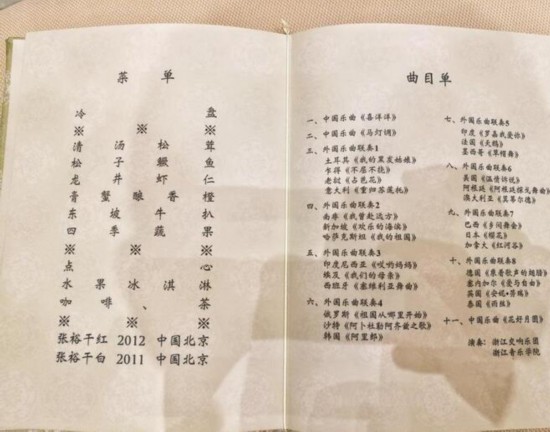 菜 单
冷 盘
※
清 汤 松 茸
松 子 鳜 鱼
龙 井 虾 仁
膏 蟹 酿 香 橙
东 坡 牛 扒
四 季 蔬 果
※
点 心
水 果 冰 淇 淋
咖 啡 、 茶
※ ※ ※
张裕干红 2012 中国北京
张裕干白 2011 中国北京
曲目单
一、中国乐曲《喜洋洋》
二、中国乐曲《马灯调》
三、外国乐曲联奏1
土耳其《我的黑发姑娘》
乍得《不屈不挠》
老挝《占芭花》
意大利《重归苏莲托》
四、外国乐曲联奏2
南非《我曾赴远方》
新加坡《欢乐的海滨》
哈萨克斯坦《我的祖国》
五、外国乐曲联奏3
印度尼西亚《哎哟妈妈》
埃及《我们的母亲》
西班牙《塞维利亚舞曲》
六、外国乐曲联奏4
俄罗斯《祖国从哪里开始》
沙特《阿卜杜勒阿齐兹之歌》
韩国《阿里郎》
七、外国乐曲联奏5
印度《罗摩我爱你》
法国《天鹅》
墨西哥《草帽舞》
八、外国乐曲联奏6
美国《温情诉说》
阿根廷《阿根廷探戈舞曲》
澳大利亚《羽蒂尔德》
九、外国乐曲联奏7
巴西《乡间舞会》
日本《樱花》
加拿大《红河谷》
十、外国乐曲联奏8
德国《乘着歌声的翅膀》
塞内加尔《爱与自由》
英国《会妮·劳瑞》
泰国《雨丝》
十一、中国乐曲《花好月圆》
演奏：浙江交响乐团
浙江音乐学院